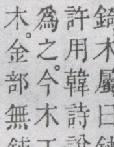 錡木屬曰
許用韓詩說
爲之今木
木。金部無